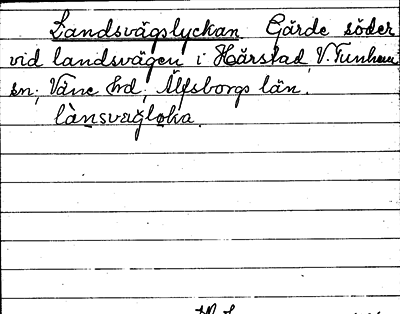 Landsvägslyckan Gärde söder
vid landsvägen i Hårstad, V. Tunhem
sn; Väne hd, Älfsborgs län.
lànsvæg̀lo̱ka.